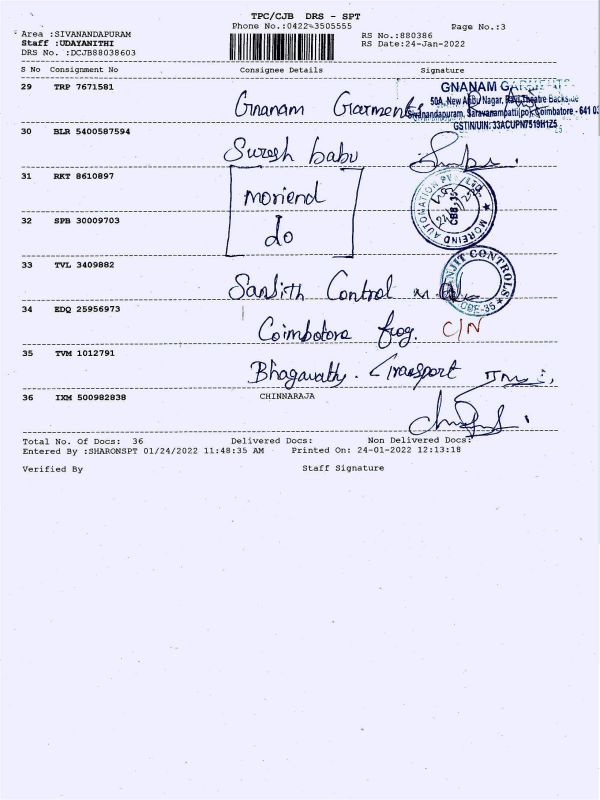 TPC/CJB DRS - SPT
Phone No.:0422-3505555
Page No.:3
Area :SIVANANDAPURAM
RS No.:880386
Staff :UDAYANITHI
RS Date:24-Jan-2022
DRS No. :DCJB88038603
S No Consignment No Consignee Details Signature
29 TRP 7671581
Gnanam Garments
GNANAM GARMENTS
50A, New Anbu Nagar, Ravi Theatre Backside
Sivanandapuram, Saravanampatti(po), Coimbatore - 641 03
GSTIN/UIN: 33ACUPN7519H1Z5
30 BLR 5400587594
Suresh babu
31 RKT 8610897
moriend
MOREIND AUTOMATION PVT LTD
CBE-35
32 SPB 30009703
do
33 TVL 3409882
Sanjith Control
CONTROLS
CBE-35
34 EDQ 25956973
Coimbatore frog. C/N
35 TVM 1012791
Bhagavathy. Transport
36 IXM 500982838 CHINNARAJA
Total No. Of Docs: 36 Delivered Docs: Non Delivered Docs:
Entered By :SHARONSPT 01/24/2022 11:48:35 AM Printed On: 24-01-2022 12:13:18
Verified By Staff Signature